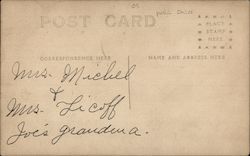 POST CARD
PLACE
STAMP
HERE
CORRESPONDENCE HERE
NAME AND ADDRESS HERE
Mrs. Michel
&
Mrs. Licoff
Joe's grandma.